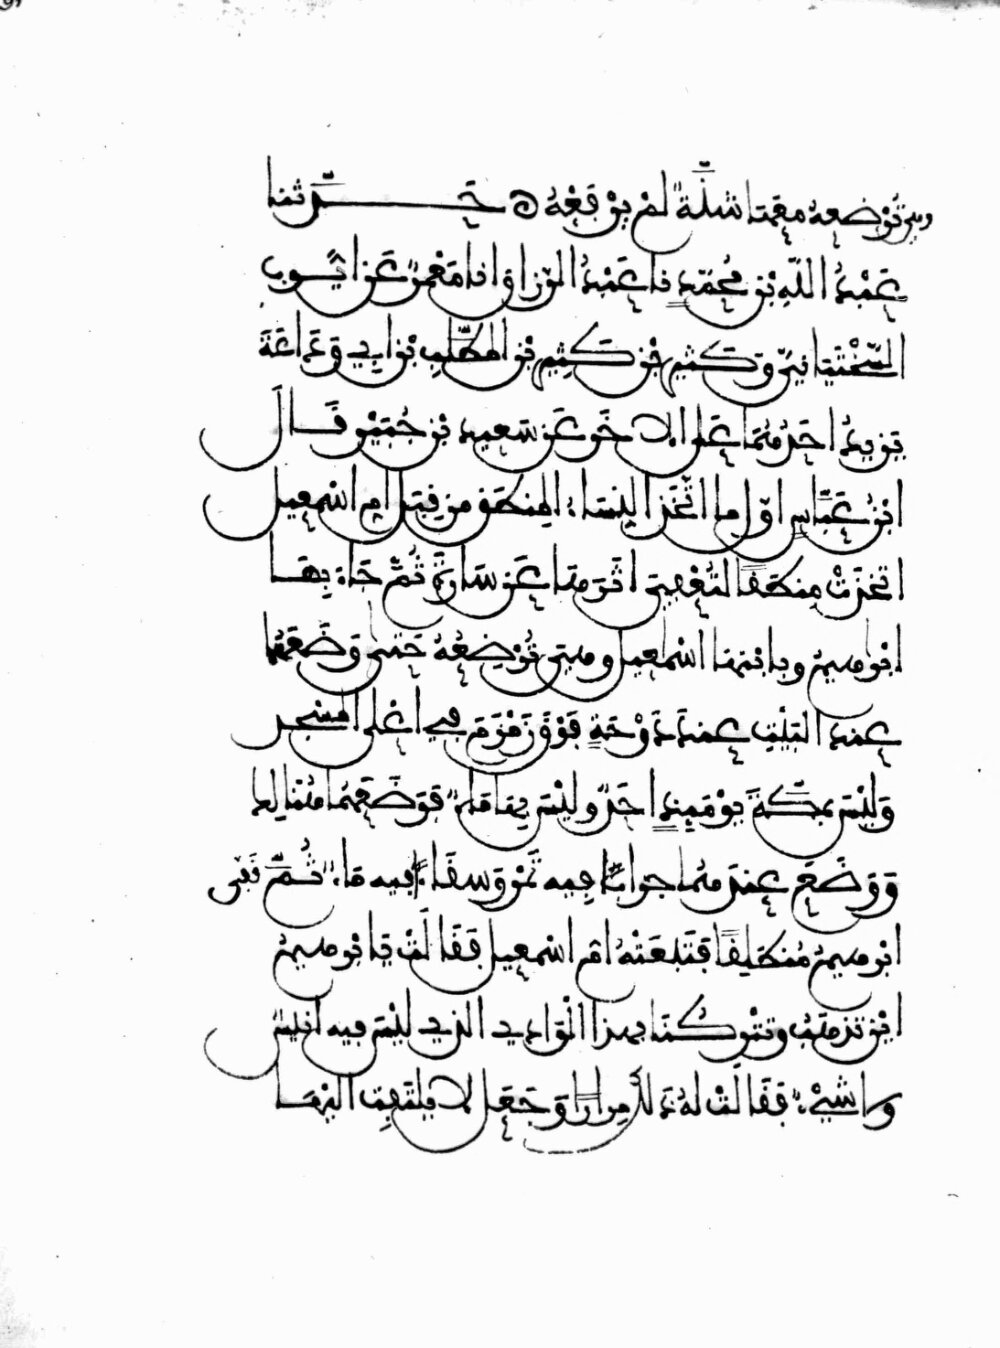 وهي ترضعه معها شنة لم يرفعه ه حدثنا
عبد الله بن محمد نا عبد الرزاق انا معمر عن ايوب
السختياني وكثير بن كثير بن المطلب بن ابي وداعة
يزيد احدهما على الاخر عن سعيد بن جبير قال
ابن عباس اول ما اتخذ النساء المنطق من قبل ام اسمعيل
اتخذت منطقا لتعفي اثرها على سارة ثم جاء بها
ابراهيم وبابنها اسمعيل وهي ترضعه حتى وضعهما
عند البيت عند دوحة فوق زمزم في اعلى المسجد
وليس بمكة يومئذ احد وليس بها ماء فوضعهما هنالك
ووضع عندهما جرابا فيه تمر وسقاء فيه ماء ثم قفى
ابرهيم منطلقا فتبعته ام اسمعيل فقالت يا ابرهيم
اين تذهب وتتركنا بهذا الوادي الذي ليس فيه انيس
ولا شيء فقالت له ذلك مرارا وجعل لا يلتفت اليها